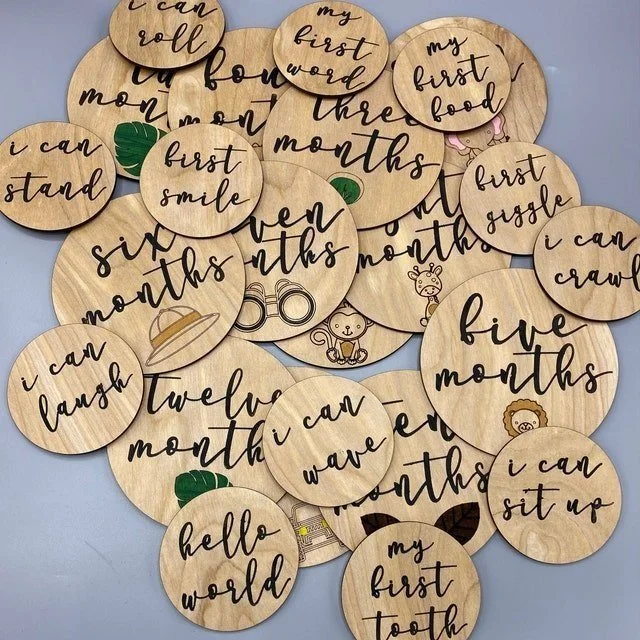 i can
roll
my
first
word
my
first
food
four
months
three
months
i can
stand
first
smile
first
giggle
i can
crawl
six
months
months
five
months
i can
laugh
twelve
months
i can
wave
months
i can
sit up
hello
world
my
first
tooth